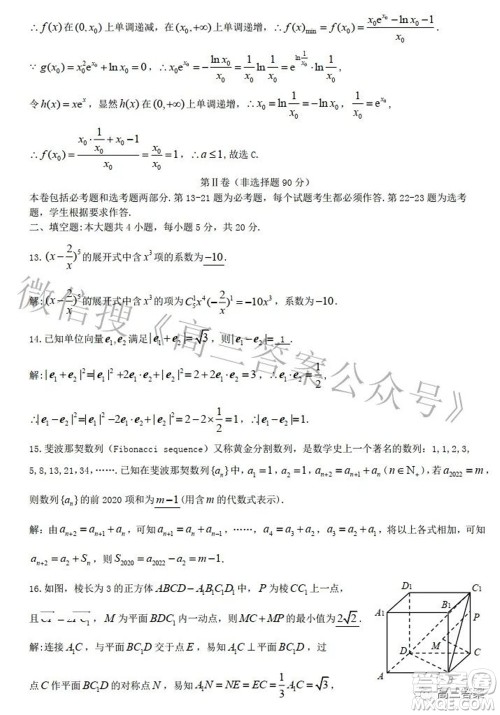 ∴ f(x) 在 (0, x₀) 上单调递减，在 (x₀, +∞) 上单调递增，∴ f(x)min = f(x₀) = (x₀e^{x₀} − ln x₀ − 1)/x₀ .
∵ g(x₀) = x₀²e^{x₀} + ln x₀ = 0，∴ x₀e^{x₀} = −(ln x₀)/x₀ = (1/x₀) ln(1/x₀) = e^{ln(1/x₀)} · ln(1/x₀)，
令 h(x) = xe^x，显然 h(x) 在 (0, +∞) 上单调递增，∴ x₀ = ln(1/x₀) = −ln x₀，1/x₀ = e^{x₀}，
∴ f(x₀) = (x₀ · 1/x₀ + x₀ − 1)/x₀ = x₀/x₀ = 1，∴ a ≤ 1，故选 C.
第Ⅱ卷（非选择题 90 分）
本卷包括必考题和选考题两部分. 第 13-21 题为必考题，每个试题考生都必须作答. 第 22-23 题为选考题，学生根据要求作答.
二、填空题:本大题共 4 小题，每小题 5 分，共 20 分.
13. (x − 2/x)⁵ 的展开式中含 x³ 项的系数为 −10.
解: (x − 2/x)⁵ 的展开式中含 x³ 的项为 C₅¹x⁴(−2/x)¹ = −10x³.
14. 已知单位向量 e₁, e₂ 满足 |e₁ + e₂| = √3，则 |e₁ − e₂| = 1 .
解: |e₁ + e₂|² = |e₁|² + 2e₁·e₂ + |e₂|² = 2 + 2e₁·e₂ = 3，∴ e₁·e₂ = 1/2，
∴ |e₁ − e₂|² = |e₁|² − 2e₁·e₂ + |e₂|² = 2 − 2 × 1/2 = 1，∴ |e₁ − e₂| = 1.
15. 斐波那契数列（Fibonacci sequence）又称黄金分割数列，是数学史上一个著名的数列：1,1,2,3,
5,8,13,21,34，……. 已知在斐波那契数列{aₙ}中，a₁ = 1，a₂ = 1，aₙ₊₂ = aₙ₊₁ + aₙ (n∈N₊)，若 a₂₀₂₂ = m，
则数列{aₙ}的前 2020 项和为 m − 1 (用含 m 的代数式表示).
解：由 aₙ₊₂ = aₙ₊₁ + aₙ，可知 aₙ₊₁ = aₙ + aₙ₋₁，……，a₄ = a₃ + a₂，a₃ = a₂ + a₁，将以上各式相加，可知
aₙ₊₂ = a₂ + Sₙ，则 S₂₀₂₀ = a₂₀₂₂ − a₂ = m − 1.
16. 如图，棱长为 3 的正方体 ABCD − A₁B₁C₁D₁ 中，P 为棱 CC₁ 上一点，
M 为平面 BDC₁ 内一动点，则 MC + MP 的最小值为 2√2.
解:连接 A₁C，与平面 BC₁D 交于点 E，易知 A₁C ⊥ 平面 BC₁D，过
点 C 作平面 BC₁D 的对称点 N，易知 A₁N = NE = EC = (1/3)A₁C = √3，
D₁
C₁
A₁
B₁
P
M
D
C
A
微信搜《高三答案公众号》
高三答案